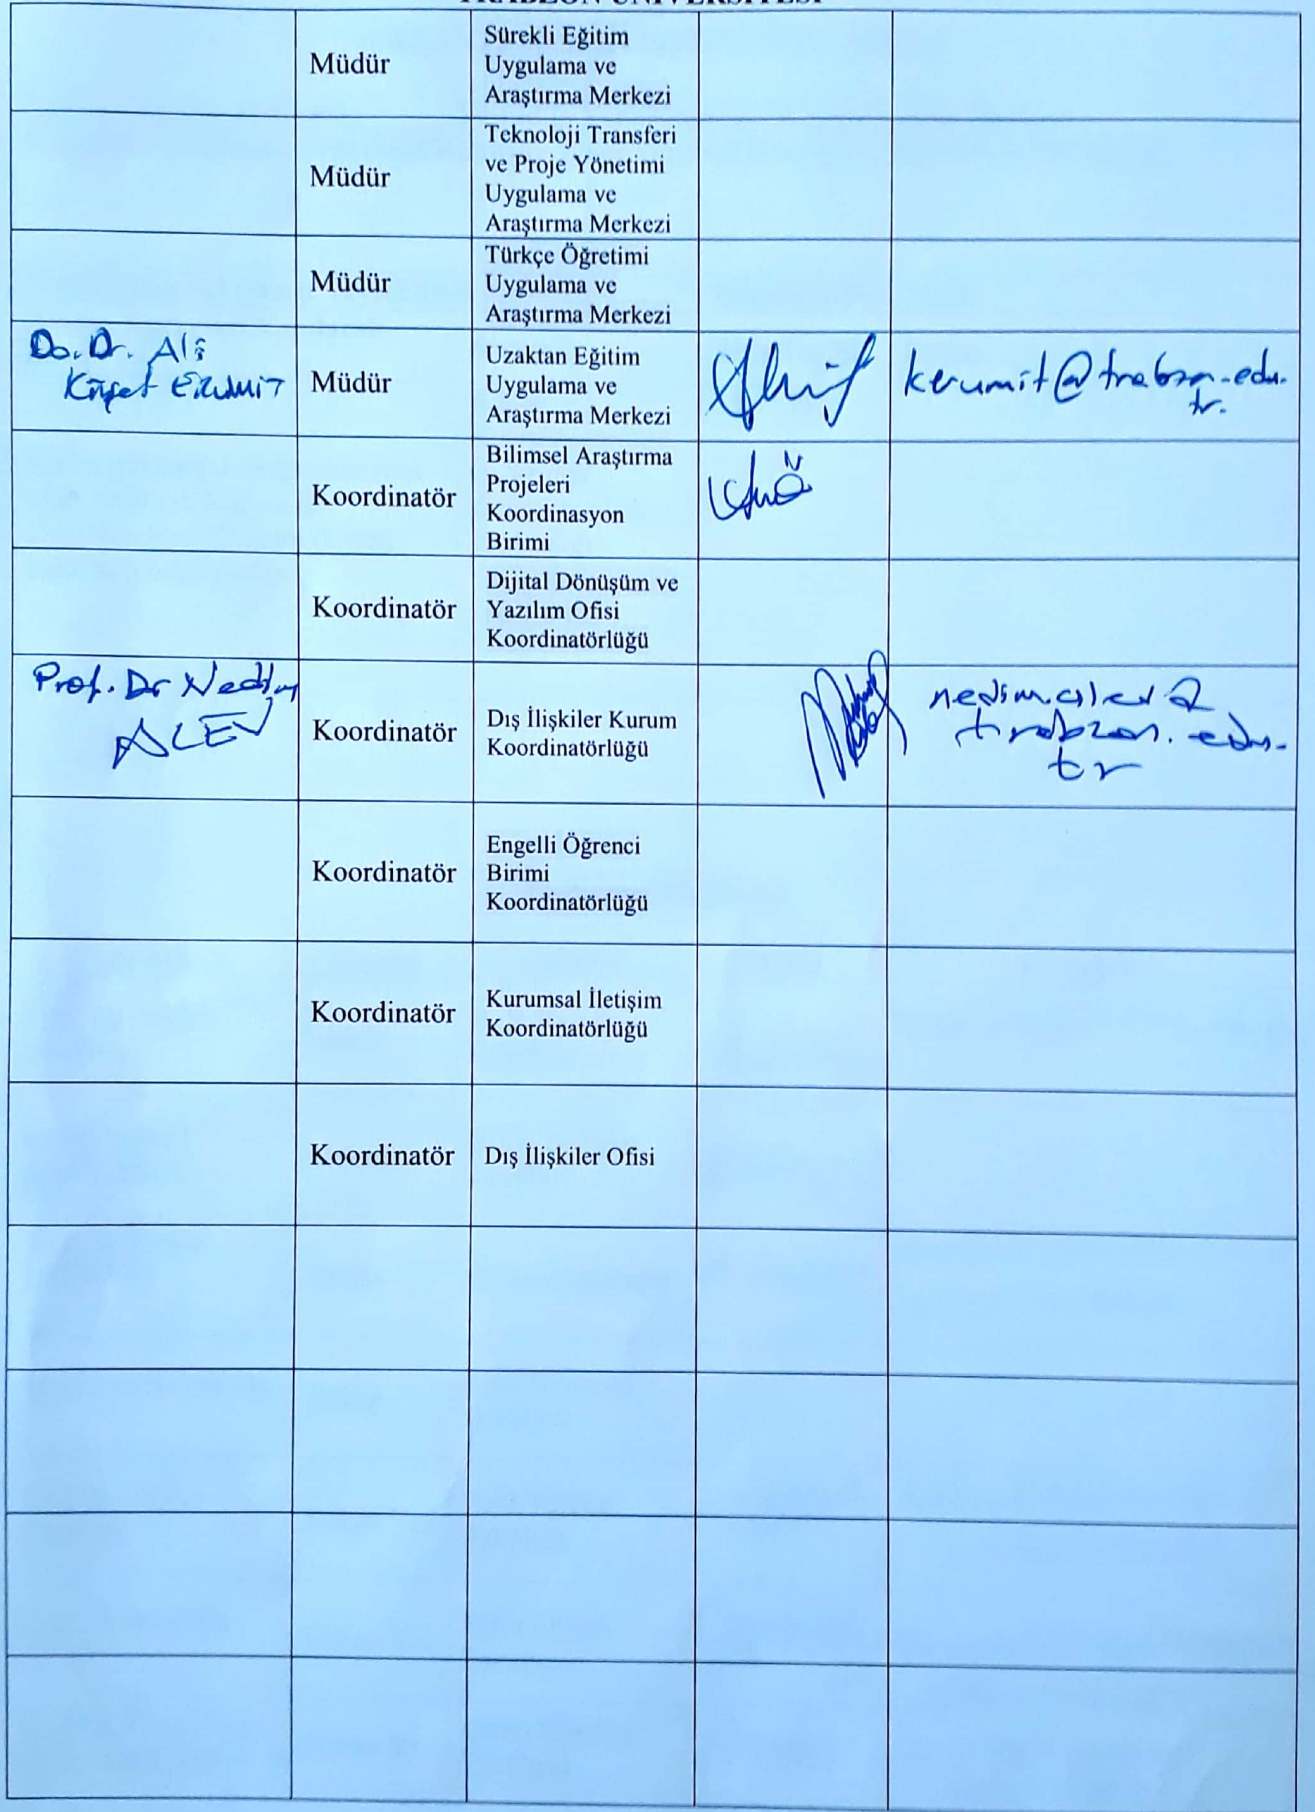 TRABZON ÜNİVERSİTESİ
Müdür
Sürekli Eğitim
Uygulama ve
Araştırma Merkezi
Müdür
Teknoloji Transferi
ve Proje Yönetimi
Uygulama ve
Araştırma Merkezi
Müdür
Türkçe Öğretimi
Uygulama ve
Araştırma Merkezi
Do. Dr. Ali
ERÜMİT
Müdür
Uzaktan Eğitim
Uygulama ve
Araştırma Merkezi
kerumit@trabzon.edu.
tr.
Koordinatör
Bilimsel Araştırma
Projeleri
Koordinasyon
Birimi
Koordinatör
Dijital Dönüşüm ve
Yazılım Ofisi
Koordinatörlüğü
Prof. Dr Nedim
ALEV
Koordinatör
Dış İlişkiler Kurum
Koordinatörlüğü
nedim.alev@
trabzon.edu.
tr
Koordinatör
Engelli Öğrenci
Birimi
Koordinatörlüğü
Koordinatör
Kurumsal İletişim
Koordinatörlüğü
Koordinatör
Dış İlişkiler Ofisi